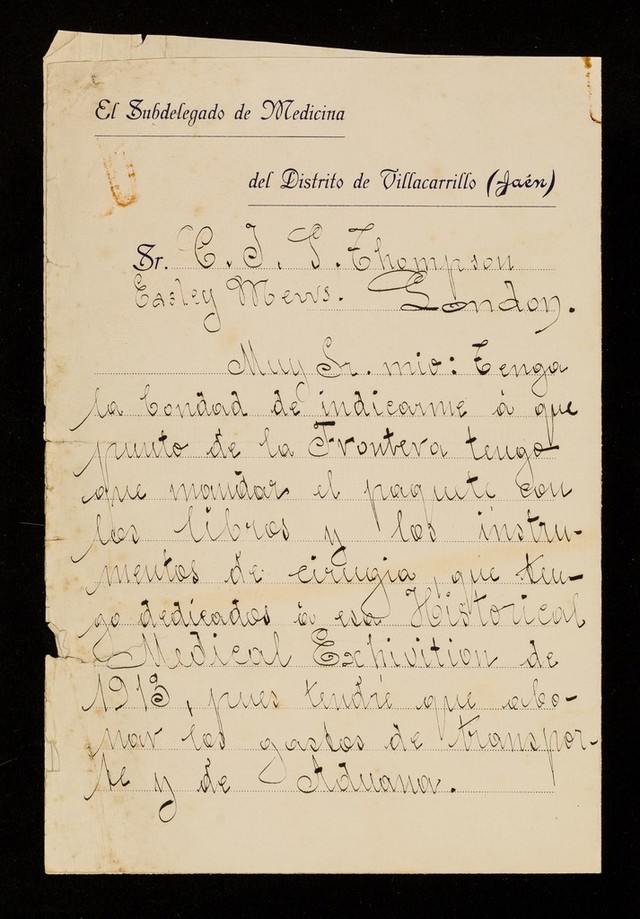 El Subdelegado de Medicina
del Distrito de Villacarrillo (Jaén)
Sr. C. J. S. Thompson
Easley Mews. London.
Muy Sr. mio: Tenga
la bondad de indicarme á que
punto de la Frontera tengo
que mandar el paquete con
los libros y los instru-
mentos de cirugia, que ten-
go dedicados á esa Historical
Medical Exhivition de
1913, pues tendré que abo-
nar los gastos de transpor-
te y de Aduana.